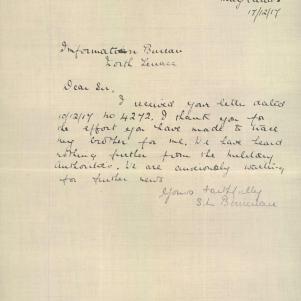 17/12/17
Information Bureau
North Terrace
Dear Sir,
I received your letter dated
10/12/17 No 4272. I thank you for
the effort you have made to trace
my brother for me. We have heard
nothing further from the military
authorities. We are anxiously waiting
for further news
Yours faithfully
S.L.